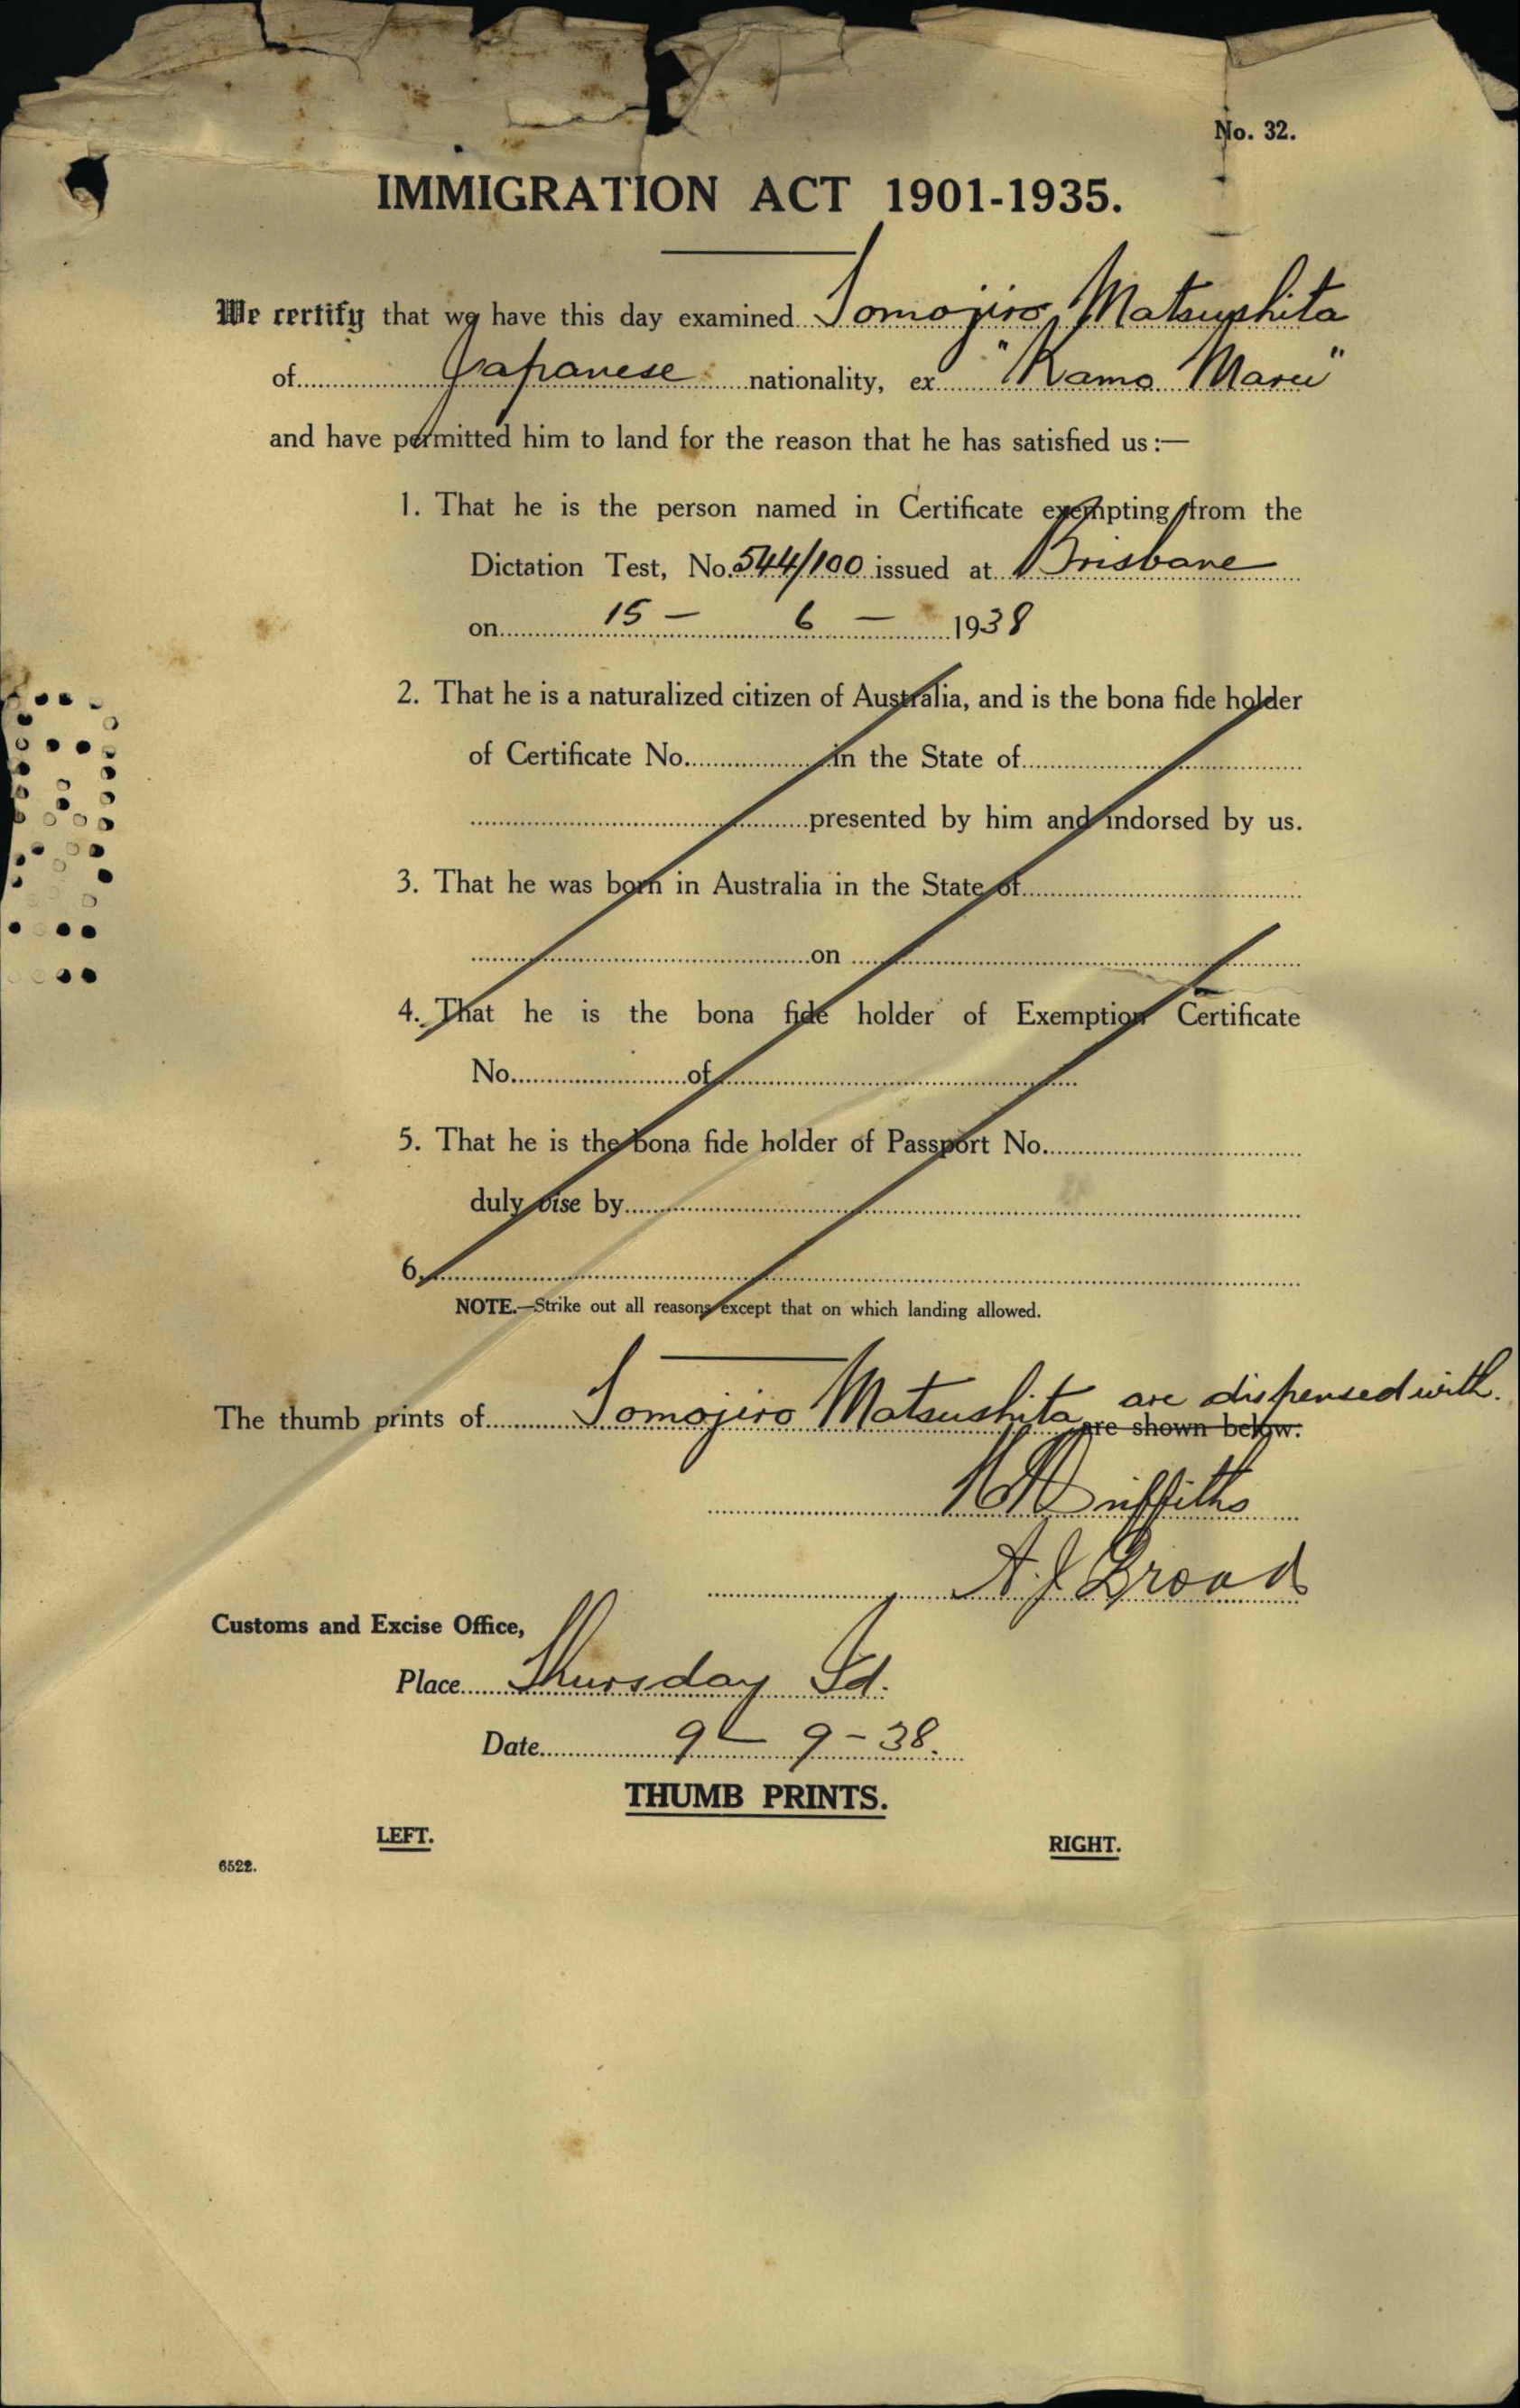 No. 32.
IMMIGRATION ACT 1901-1935.
We certify that we have this day examined Tomojiro Matsushita
of Japanese nationality, ex "Kamo Maru"
and have permitted him to land for the reason that he has satisfied us :—
1. That he is the person named in Certificate exempting from the
Dictation Test, No. 544/100 issued at Brisbane
on 15 - 6 - 1938
2. That he is a naturalized citizen of Australia, and is the bona fide holder
of Certificate No. in the State of
presented by him and indorsed by us.
3. That he was born in Australia in the State of
on
4. That he is the bona fide holder of Exemption Certificate
No. of
5. That he is the bona fide holder of Passport No.
duly vise by
6.
NOTE.—Strike out all reasons except that on which landing allowed.
are dispensed with.
The thumb prints of Tomojiro Matsushita are shown below.
Griffiths
A. J.
Customs and Excise Office,
Place Thursday Id.
Date 9 - 9 - 38.
THUMB PRINTS.
LEFT.
RIGHT.
6522.